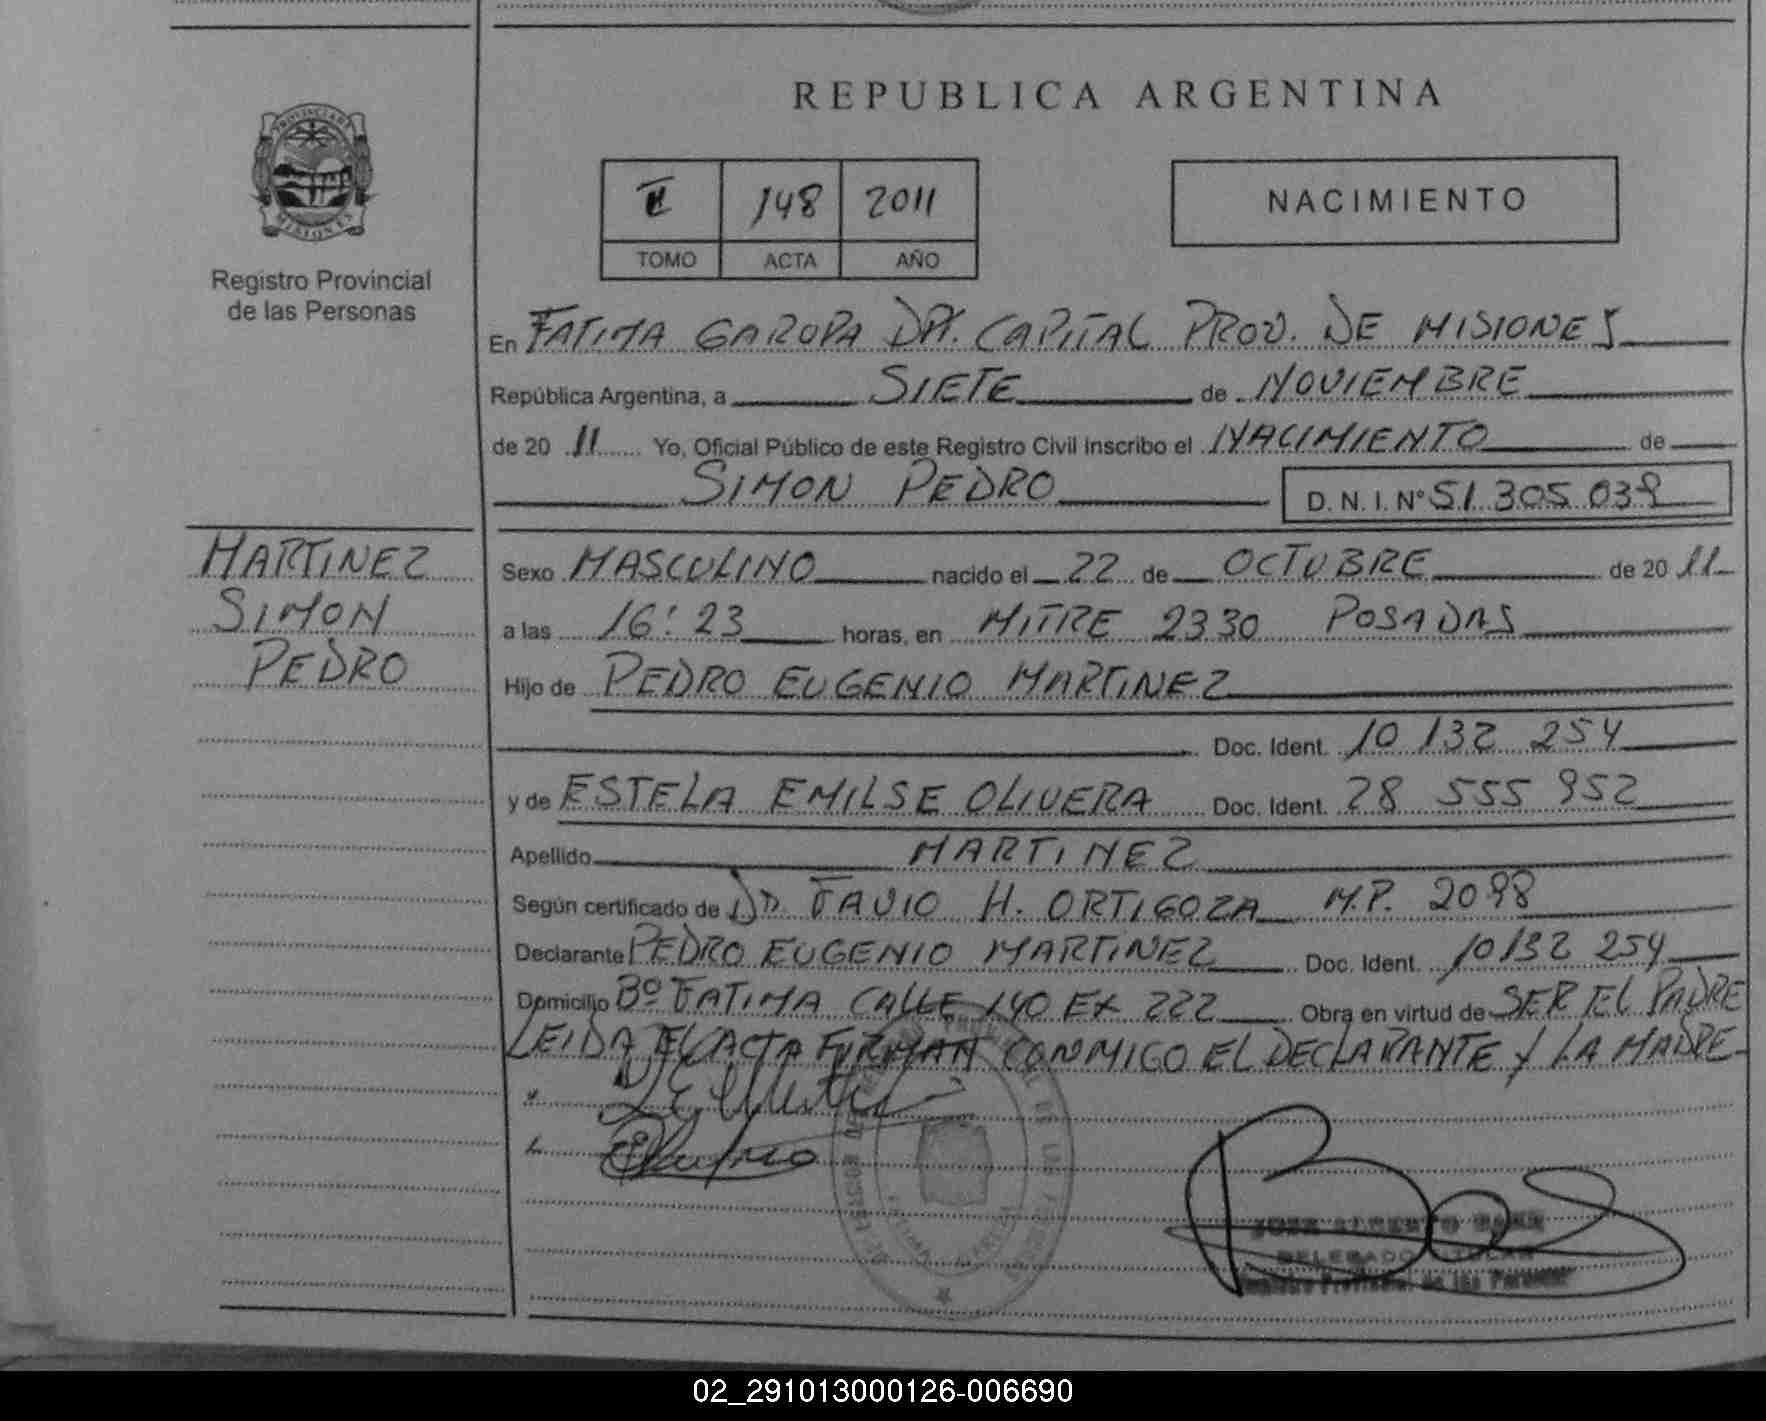 REPUBLICA ARGENTINA
PROVINCIA DE
MISIONES
Registro Provincial
de las Personas
II 148 2011
TOMO ACTA AÑO
NACIMIENTO
En FATIMA GARUPA DPT. CAPITAL PROV. DE MISIONES
República Argentina, a SIETE de NOVIEMBRE
de 20 11 Yo, Oficial Público de este Registro Civil inscribo el NACIMIENTO de
SIMON PEDRO D.N.I. Nº 51.305.039
MARTINEZ
SIMON
PEDRO
Sexo MASCULINO nacido el 22 de OCTUBRE de 20 11
a las 16:23 horas, en MITRE 2330 POSADAS
Hijo de PEDRO EUGENIO MARTINEZ
Doc. Ident. 10 132 254
y de ESTELA EMILSE OLIVERA Doc. Ident. 28 555 952
Apellido MARTINEZ
Según certificado de DR. FAVIO H. ORTIGOZA M.P. 2098
Declarante PEDRO EUGENIO MARTINEZ Doc. Ident. 10132 254
Domicilio Bº FATIMA CALLE 140 EX 222 Obra en virtud de SER EL PADRE
LEIDA EL ACTA FIRMAN CONMIGO EL DECLARANTE Y LA MADRE
JOSE ALBERTO
DELEGADO TITULAR
Registro Provincial de las Personas
02_291013000126-006690